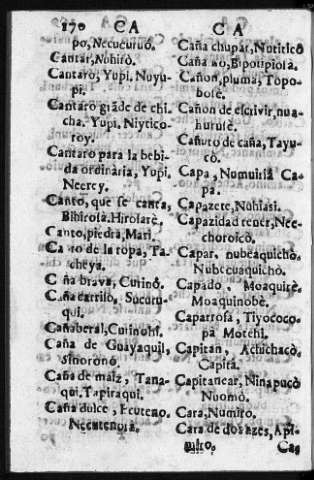 170 CA
po, Necucuruò.
Cantar, Nohirò.
Cantaro, Yupi. Nuyu-
pi.
Cantaro grãde de chi
cha. Yupi. Niytico-
roy.
Cantaro para la bebi-
da ordinaria, Yupi,
Neerey.
Canto, que se canta,
Bihirosa. Hirosarè.
Canto, piedra, Mari,
Canto de la ropa, Ta-
cheya.
Caña brava, Cutinò.
Caña carrilo, Sucuru-
qui.
Cañaberal, Cutinohi.
Caña de Guayaquil,
Sinoronò
Caña de maiz, Tana-
qui, Tapiraqui.
Caña dulce, Ecuteno.
Necutenora.
C A
Caña chupar, Nutiticò
Caña no, Bipotipiosa.
Cañon, pluma, Topo-
bose.
Cañon de escrivir, nua-
huruse.
Cañuto de caña, Tayu-
cò.
Capa, Numuirià Ca-
pa.
Capazete, Nohiasi.
Capazidad tener, Nec-
choroicò.
Capar, nubeaquichò.
Nubecuaquichò.
Capado, Moaquirè,
Moaquinobè.
Caparrosa, Tiyococo-
pa Motehi.
Capitan, Achichacò.
Capità.
Capitanear, Nina pucò
Nuomò.
Cara, Numiro.
Cara de dos azes, Api-
miro. Ca-